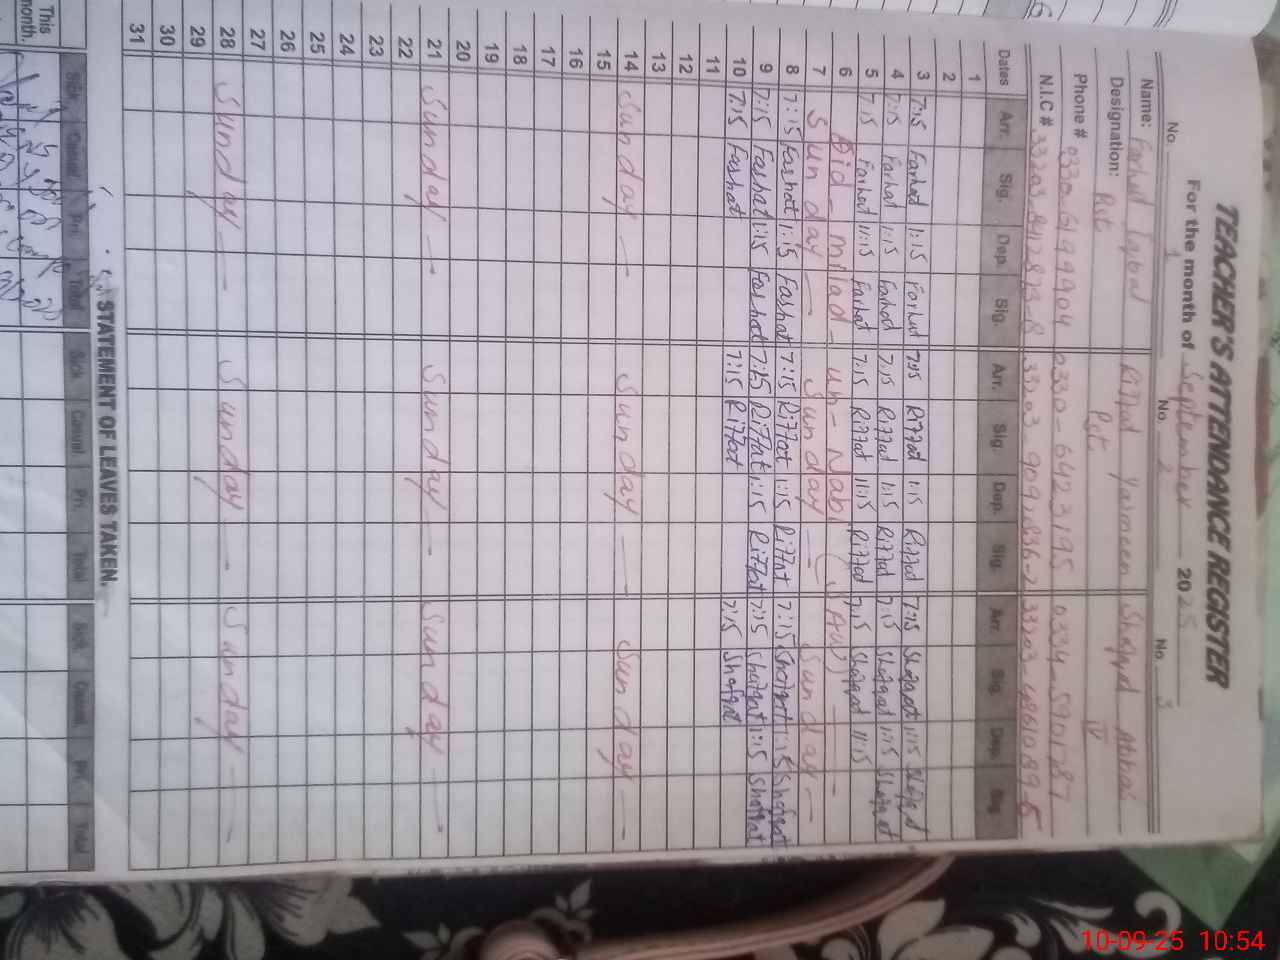 TEACHER'S ATTENDANCE REGISTER
For the month of September 2025
No. 1 No. 2 No. 3
Name: Farhat Iqbal Riffat Yasmeen Shafqat Abbas
Designation: Pst Pst. IV
Phone # 0330-6199904 0330-6423195 0334-5901787
N.I.C # 33203-8412873-8 33203-9091836-2 33203-4861089-5
Dates Arr. Sig. Dep. Sig. Arr. Sig. Dep. Sig. Arr. Sig. Dep. Sig
1
2
3 7:15 Farhat 1:15 Farhat 7:15 Riffat 1:15 Riffat 7:15 Shafqat 1:15 Shafqat
4 7:15 Farhat 1:15 Farhat 7:15 Riffat 1:15 Riffat 7:15 Shafqat 1:15 Shafqat
5 7:15 Farhat 11:15 Farhat 7:15 Riffat 11:15 Riffat 7:15 Shafqat 11:15
6 Eid-milad-un-Nabi (SAW)
7 Sunday — Sunday — Sunday —
8 7:15 Farhat 1:15 Farhat 7:15 Riffat 1:15 Riffat 7:15 Shafqat 1:15 Shafqat
9 7:15 Farhat 1:15 Farhat 7:15 Riffat 1:15 Riffat 7:15 Shafqat 1:15 Shafqat
10 7:15 Farhat 7:15 Riffat 7:15 Shafqat
11
12
13
14 Sunday — Sunday — Sunday —
15
16
17
18
19
20
21 Sunday — Sunday — Sunday —
22
23
24
25
26
27
28 Sunday — Sunday — Sunday —
29
30
31
STATEMENT OF LEAVES TAKEN.
Sick Casual Pri. Total Sick Casual Pri. Total Sick Casual Pri. Total
This month.
10-09-25 10:54